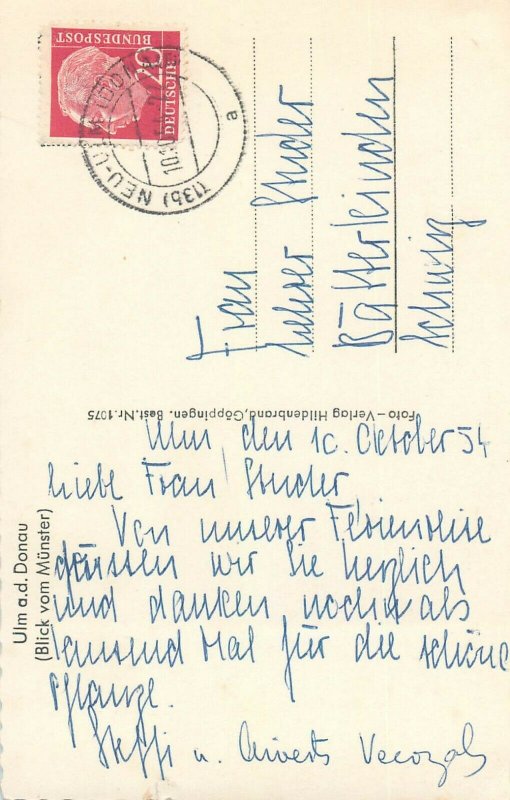 20
DEUTSCHE
BUNDESPOST
(13b) NEU-U
a
Frau
Lehrer Studer
Bätterkinden
Schweiz
Foto – Verlag Hildenbrand, Göppingen. Best. Nr. 1075
Ulm a.d. Donau
(Blick vom Münster)
Ulm, den 10. Oktober 54
Liebe Frau Studer,
Von unserer Ferienreise
grüssen wir Sie herzlich
und danken nochmals
tausend Mal für die schöne
Pflanze.
Steffi u.